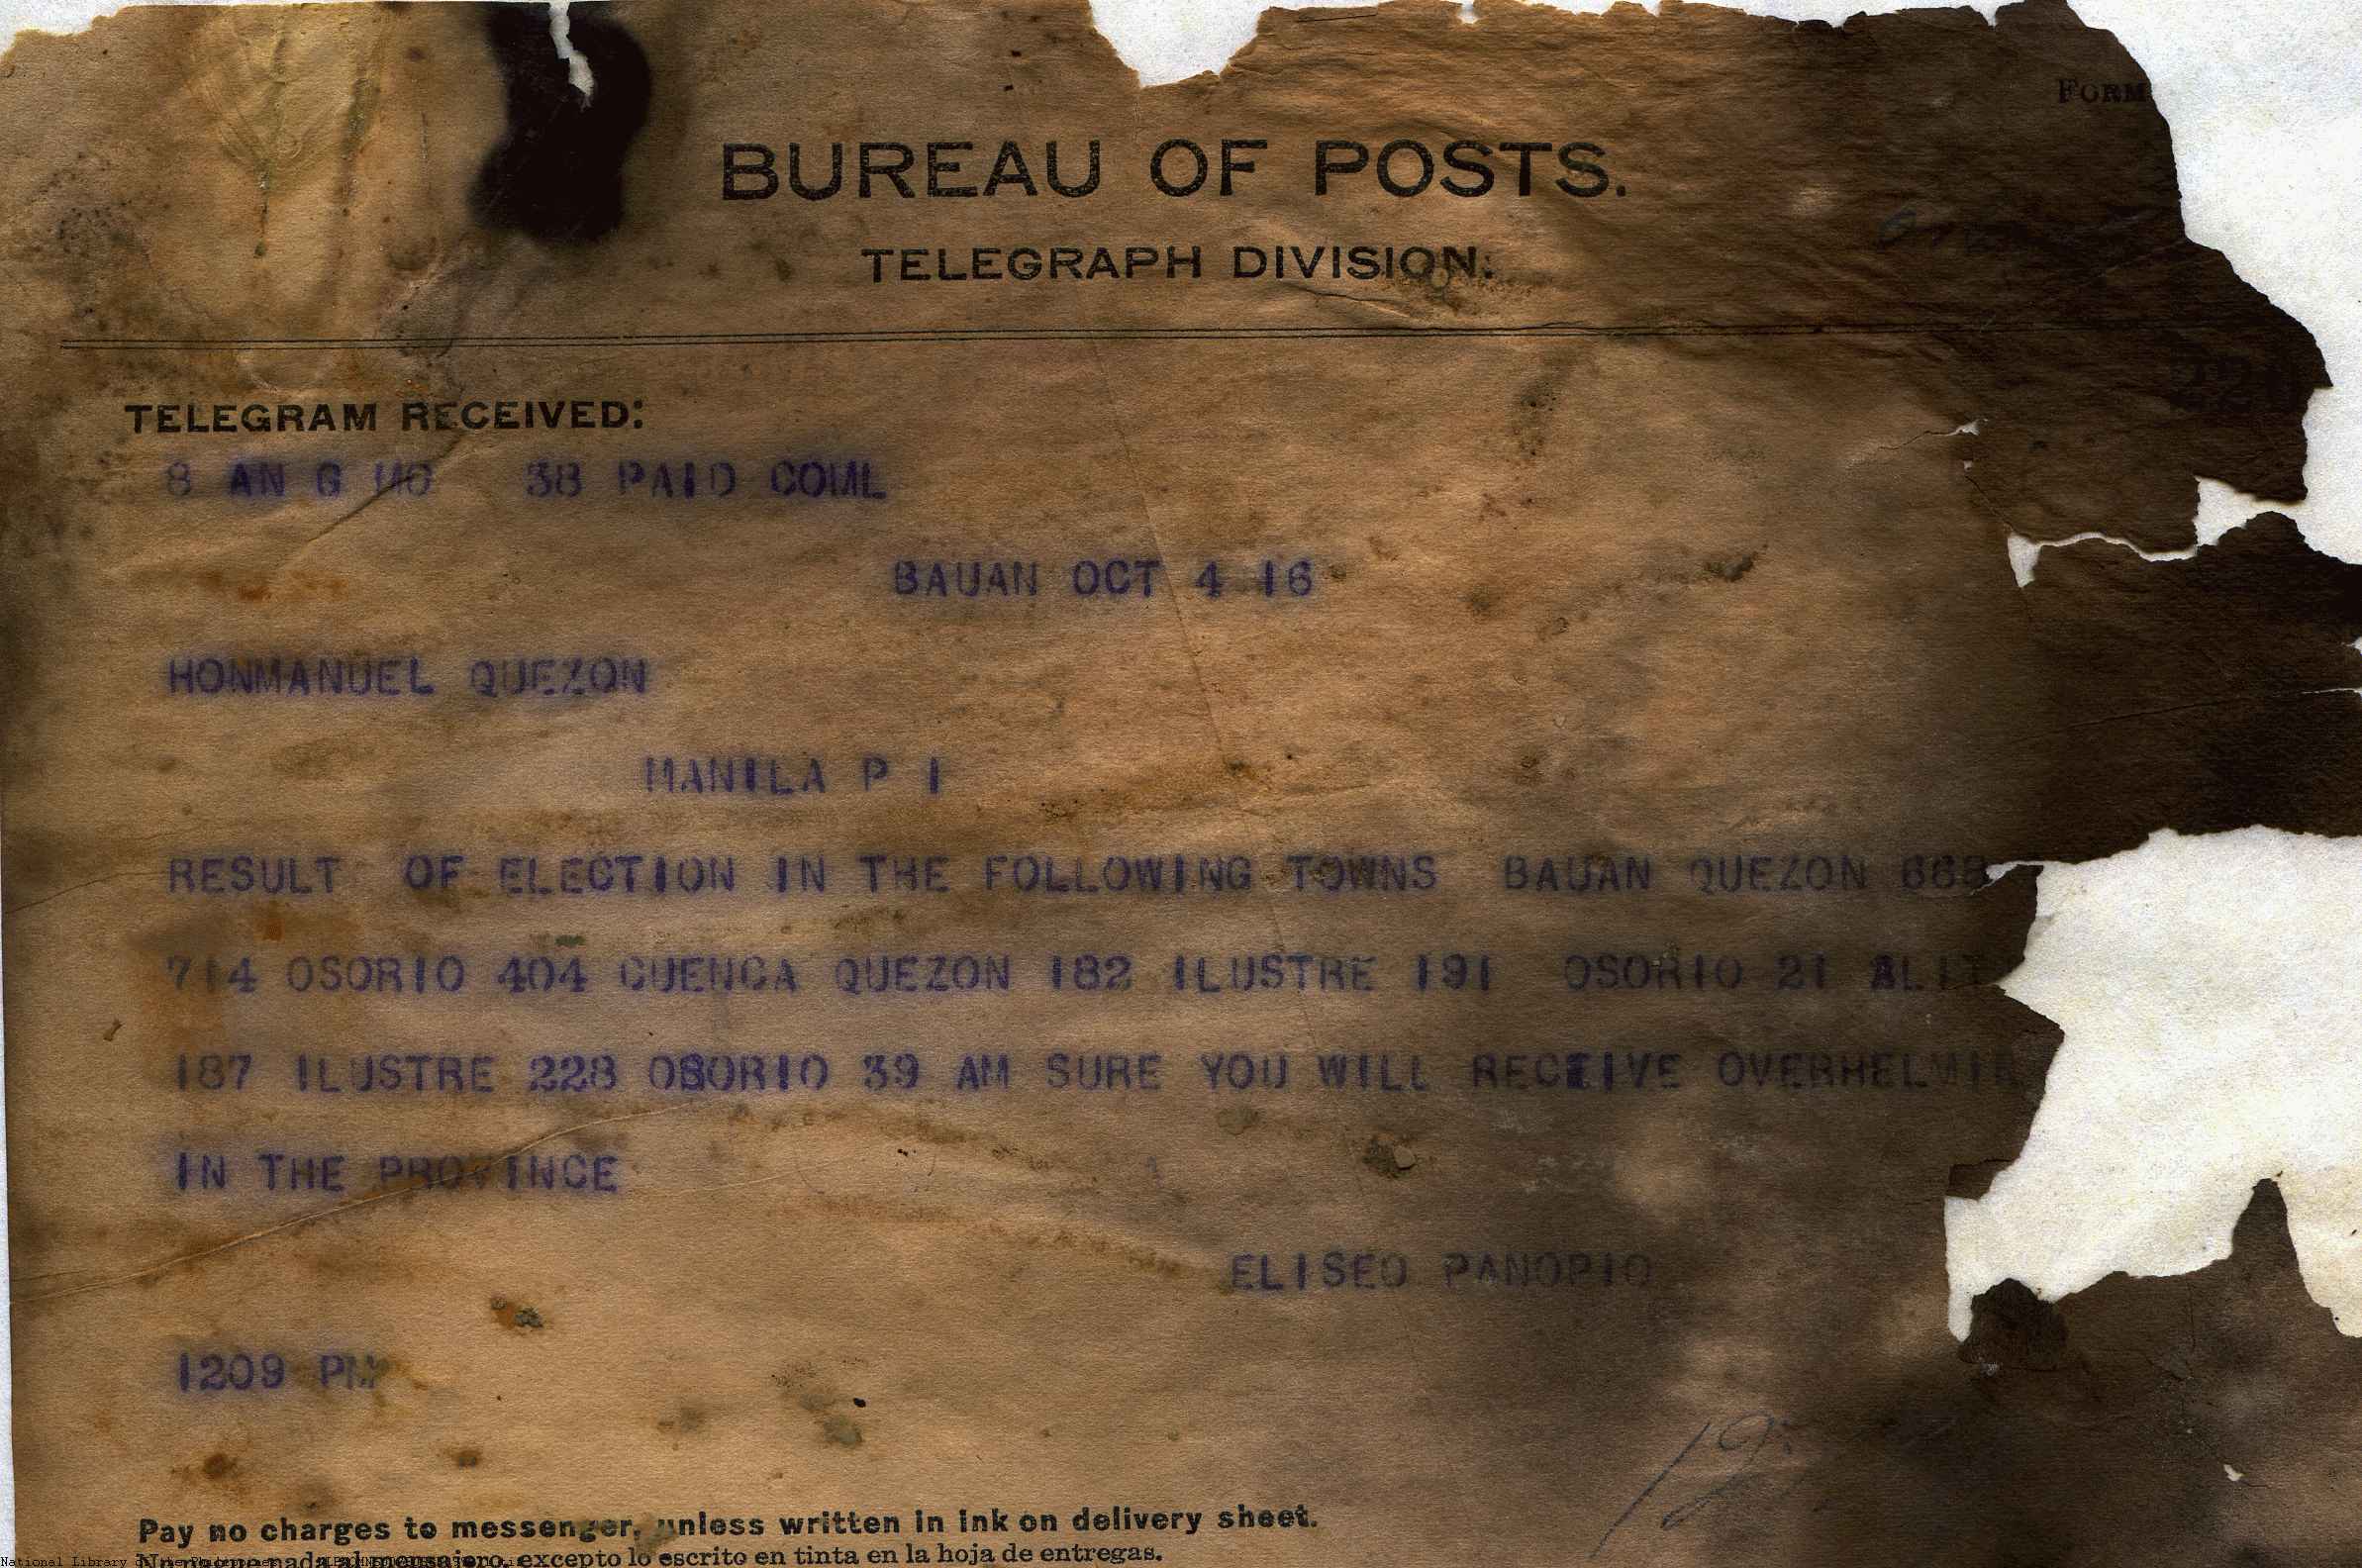 FORM
BUREAU OF POSTS.
TELEGRAPH DIVISION.
TELEGRAM RECEIVED:
8 AN G MO 38 PAID COML
BAUAN OCT 4 16
HONMANUEL QUEZON
MANILA P I
RESULT OF ELECTION IN THE FOLLOWING TOWNS BAUAN QUEZON 668
714 OSORIO 404 CUENCA QUEZON 182 ILUSTRE 191 OSORIO 21 ALIT
187 ILUSTRE 228 OSORIO 39 AM SURE YOU WILL RECEIVE OVERHELMIN
IN THE PROVINCE
ELISEO PANOPIO
1209 PM
Pay no charges to messenger, unless written in ink on delivery sheet.
No pague nada al mensajero, excepto lo escrito en tinta en la hoja de entregas.
National Library of the Philippines